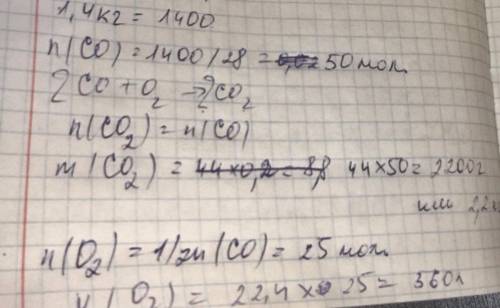 1,4кг = 1400
n(CO) = 1400/28 = 50 мол
2CO + O₂ → 2CO₂
n(CO₂) = n(CO)
m(CO₂) = 44×0,2 = 8,8 44×50 = 2200г
или 2,2к
n(O₂) = 1/2n(CO) = 25 мол
V(O₂) = 22,4 × 25 = 560л